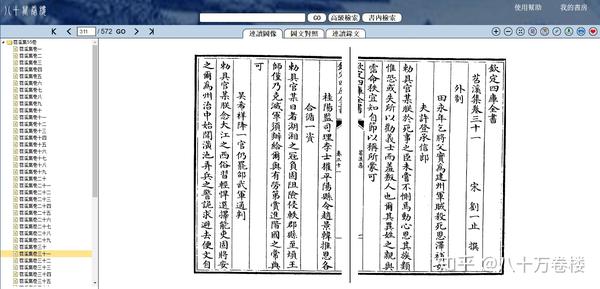 八十萬卷樓
GO 高級檢索 書內檢索
使用幫助 我的書房
311 / 572 GO
連讀圖像 圖文對照 連讀錄文
苕溪集55卷
苕溪集卷一
苕溪集卷二
苕溪集卷三
苕溪集卷四
苕溪集卷五
苕溪集卷六
苕溪集卷七
苕溪集卷八
苕溪集卷九
苕溪集卷十
苕溪集卷十一
苕溪集卷十二
苕溪集卷十三
苕溪集卷十四
苕溪集卷十五
苕溪集卷十六
苕溪集卷十七
苕溪集卷十八
苕溪集卷十九
苕溪集卷二十
苕溪集卷二十一
苕溪集卷二十二
苕溪集卷二十三
苕溪集卷二十四
苕溪集卷二十五
苕溪集卷二十六
苕溪集卷二十七
苕溪集卷二十八
苕溪集卷二十九
苕溪集卷三十
苕溪集卷三十一
苕溪集卷三十二
苕溪集卷三十三
苕溪集卷三十四
苕溪集卷三十五
欽定四庫全書
苕溪集卷三十一 宋 劉一止 撰
外制
田永年乞將父實為建州軍賊殺死恩澤補女
夫許登承信郎
勅具官某朕於死事之臣未嘗不惻焉動心思其族類
惟恐或失所以勸義士而羞叛人也爾其異姓之親與
霑命秩宜知自飭以稱所蒙可
欽定四庫全書
苕溪集
卷三十一
桂陽監司理李士擢平陽縣令趙景韓推恩各
合循一資
勅具官某日者湖湘之寇負固阻險侵軼郡縣至煩王
師僅乃克滅軍須辦給爾與有勞第賞進陽國之常典
可
吳希祥降一官仍罷邵武軍通判
勅具官某朕念大江之西俗習輕悍選擇能吏固將安
之爾為州治中始聞潢池弄兵之警詭求避去便文自
知乎 @八十万卷楼